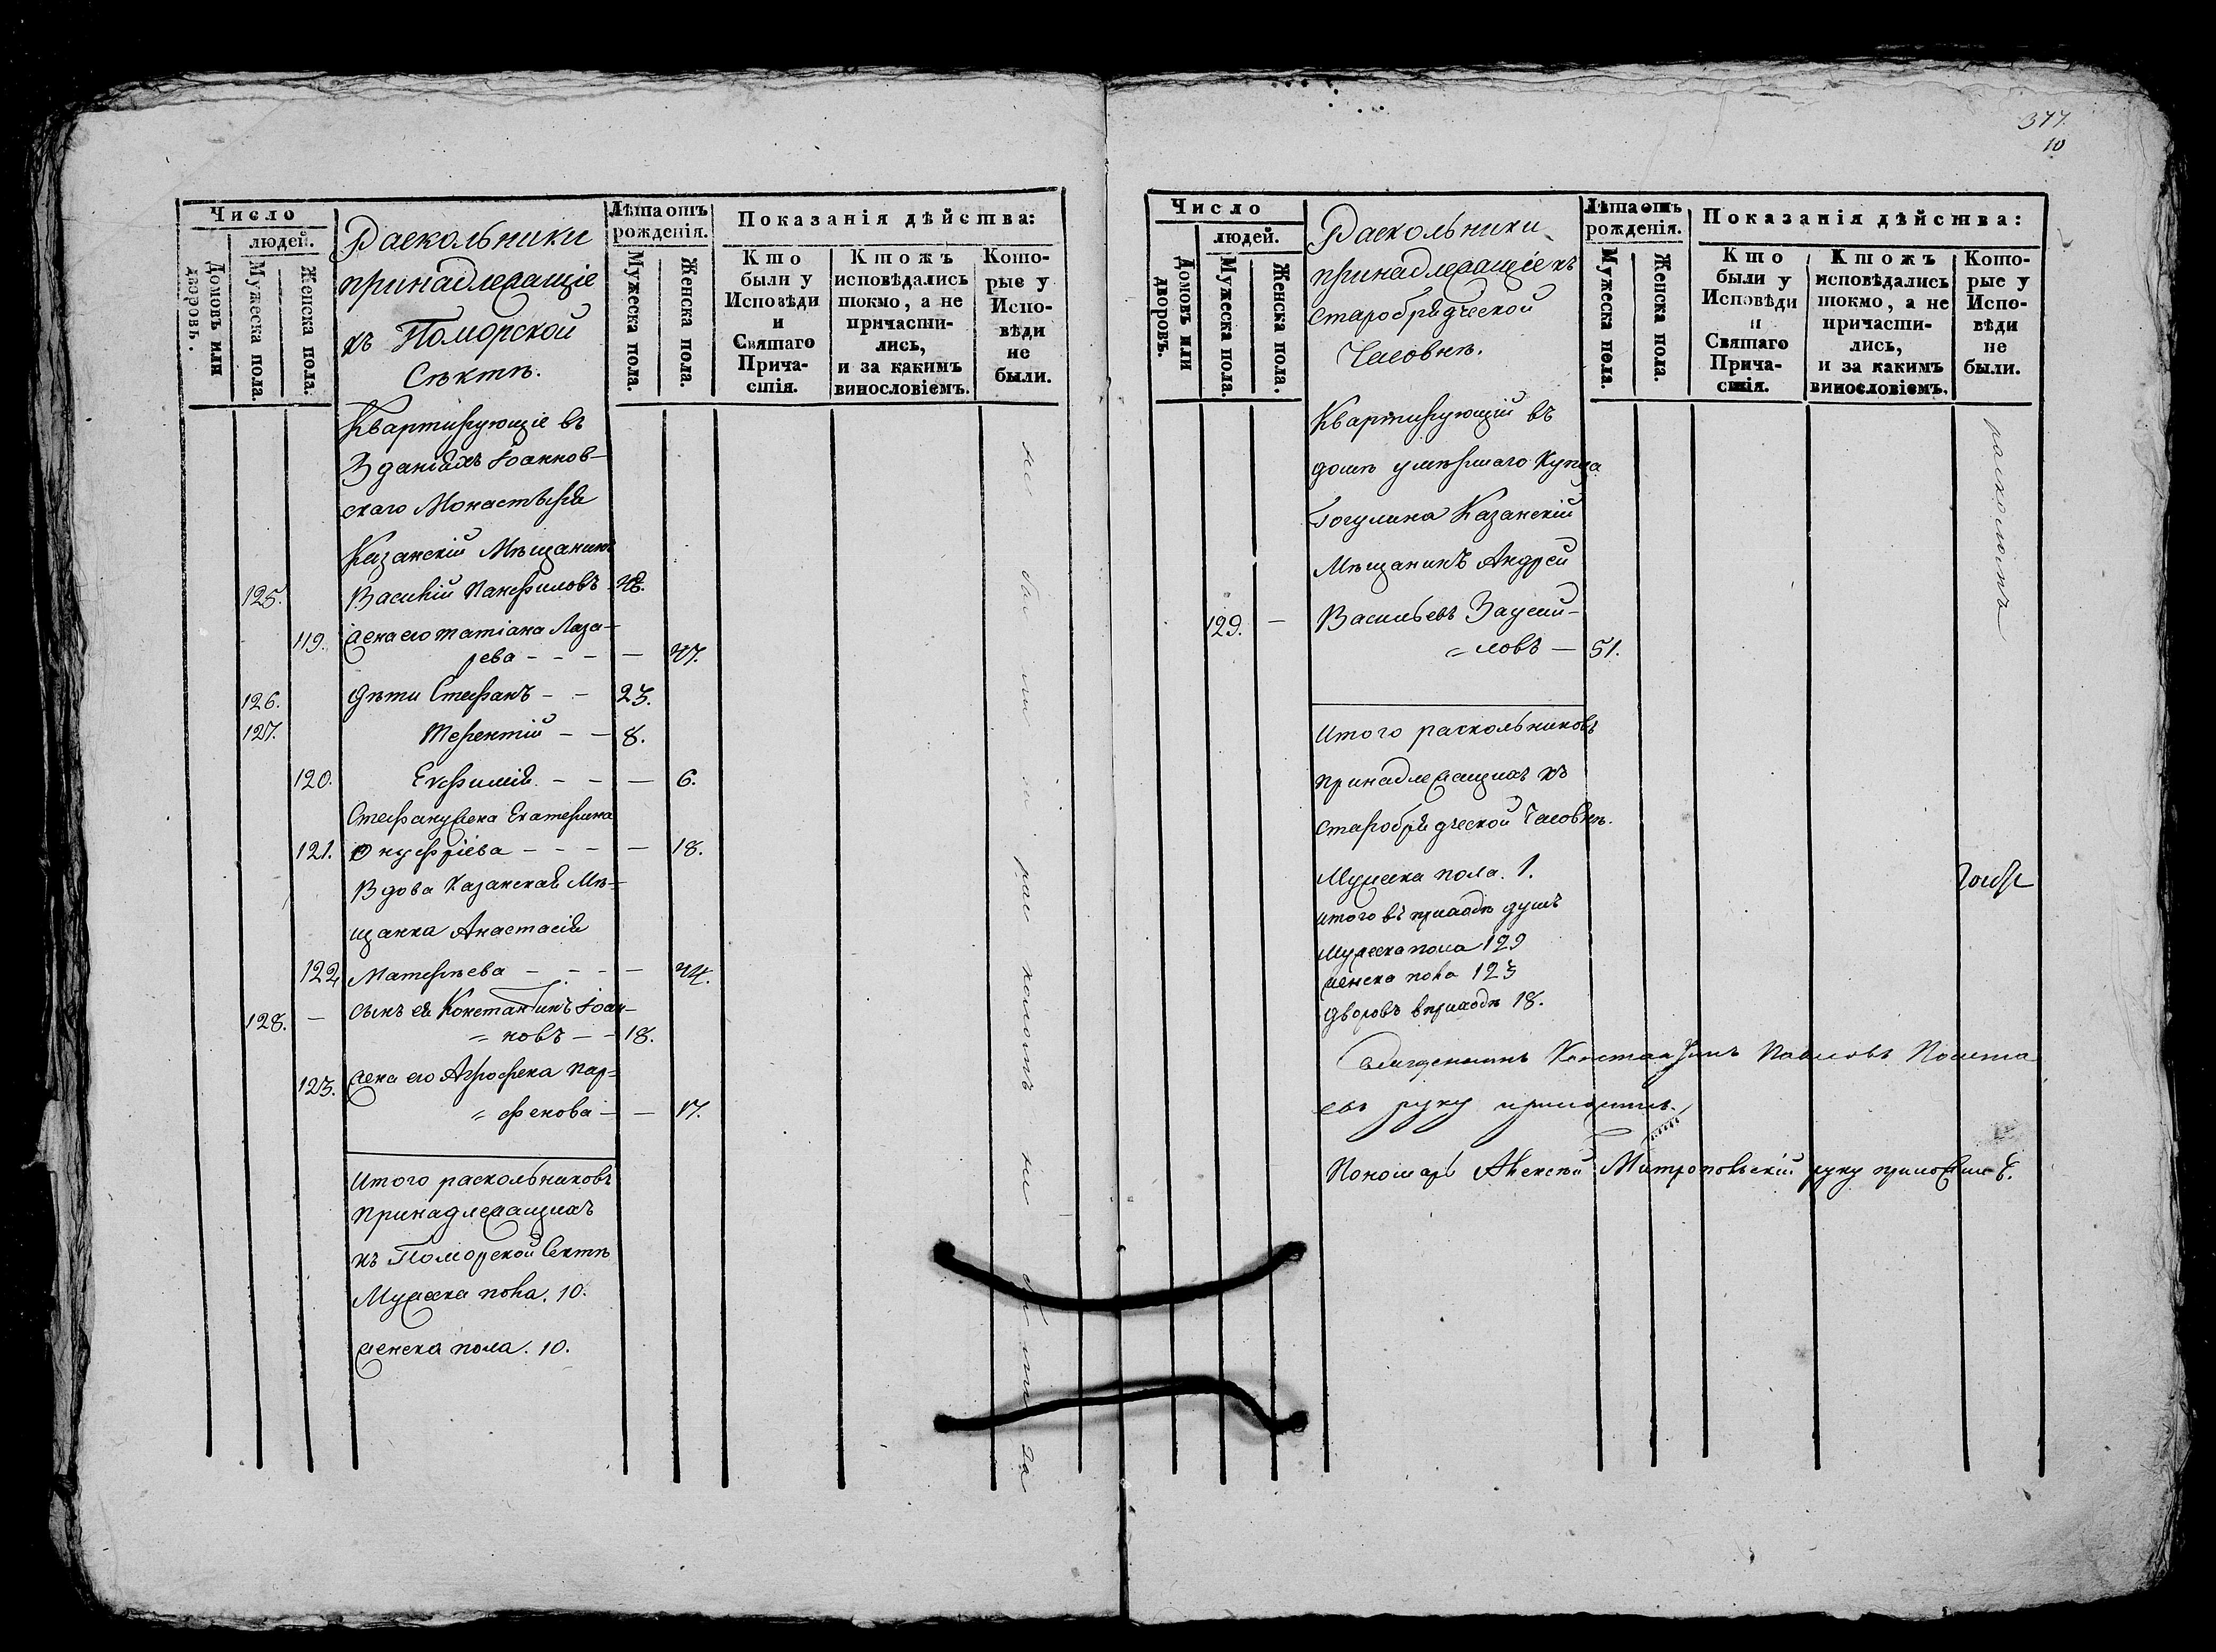 377.
10
Число
людей.
Домовъ или дворовъ.
Мужеска пола.
Женска пола.
Раскольники
принадлежащіе
къ Поморской
Сѣктѣ.
Лѣта отъ
рожденія.
Мужеска пола.
Женска пола.
Показанія дѣйства:
Кто
были у
Исповѣди
и
Святаго
Прича-
стія.
Ктожъ
исповѣдались
токмо, а не
причасти-
лись,
и за какимъ
винословіемъ.
Кото-
рые у
Испо-
вѣди
не
были.
Квартирующіе въ
Зданіяхъ Іоаннов-
скаго Монастыря
Казанскій Мѣщанинъ
125. Василій Панфиловъ 48.
119. жена его Татіана Лаза-
рева - - - — 47.
126. дѣти Стефанъ - - 23.
127. Терентій - - 8.
120. Евфимія - - — 6.
Стефану жена Екатерина
121. Онуфріева - - - — 18.
Вдова Казанская Мѣ-
щанка Анастасія
122. Матфѣева - - - — 44.
128. — сынъ ея Константинъ Іоан-
= новъ - - 18.
123. жена его Агрофена Пар-
= фенова - — 17.
Итого раскольниковъ
принадлежащихъ
къ Поморской Сектѣ
Мужеска пола. 10.
женска пола. 10.
не были по расколомъ
Число
людей.
Домовъ или дворовъ.
Мужеска пола.
Женска пола.
Раскольники
принадлежащіе къ
старобрядческой
Часовнѣ.
Лѣта отъ
рожденія.
Мужеска пола.
Женска пола.
Показанія дѣйства:
Кто
были у
Исповѣди
и
Святаго
Прича-
стія.
Ктожъ
исповѣдались
токмо, а не
причасти-
лись,
и за какимъ
винословіемъ.
Кото-
рые у
Испо-
вѣди
не
были.
Квартирующій въ
домѣ умершаго Купца
Казанскій
Мѣщанинъ Андрей
129. — Васильевъ
= ловъ — 51.
расколомъ
Итого раскольниковъ
принадлежащихъ къ
старобрядческой Часовнѣ.
Мужеска пола. 1.
итого въ приходѣ душъ
Мужеска пола 129
женска пола 123
дворовъ въ приходѣ 18.
Священникъ Константинъ Павловъ
евъ руку приложилъ.
Пономарь Алексѣй Митропольскій руку приложилъ.